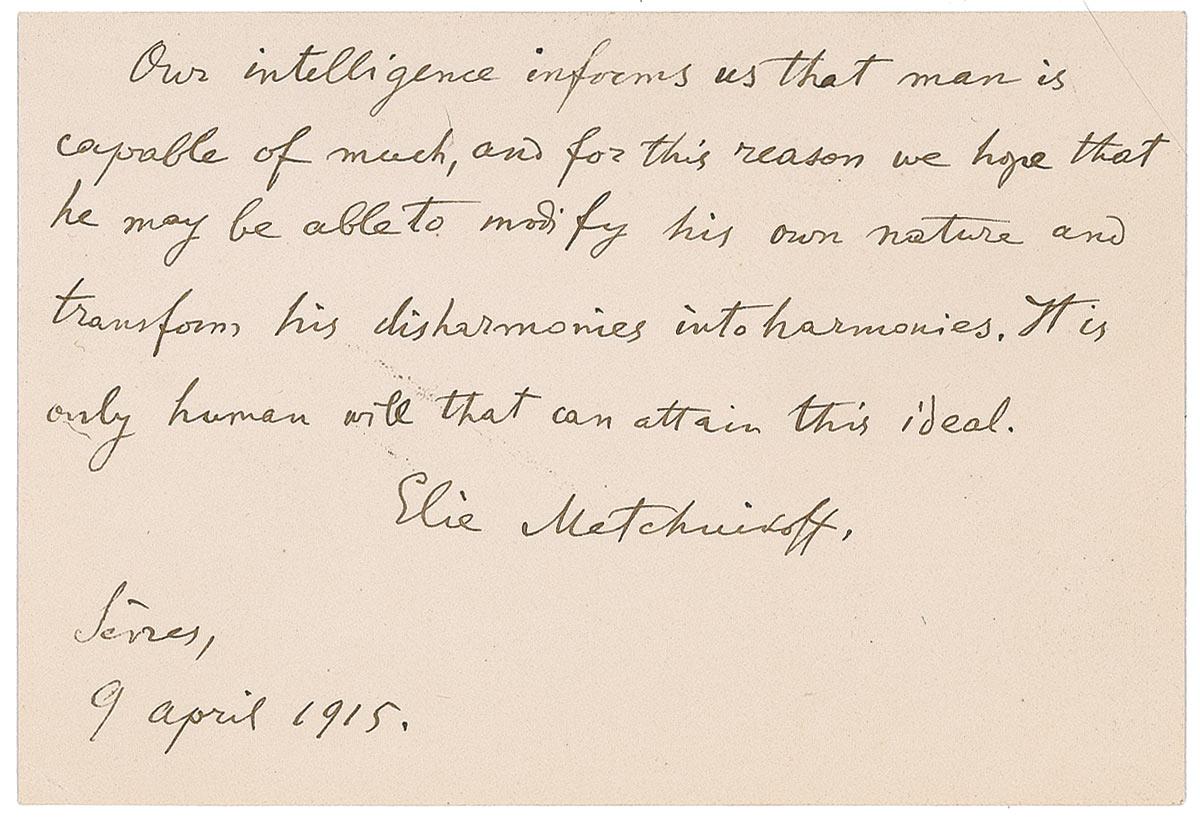 Our intelligence informs us that man is
capable of much, and for this reason we hope that
he may be able to modify his own nature and
transform his disharmonies into harmonies. It is
only human will that can attain this ideal.
Elie Metchnikoff.
Sèvres,
9 april 1915.